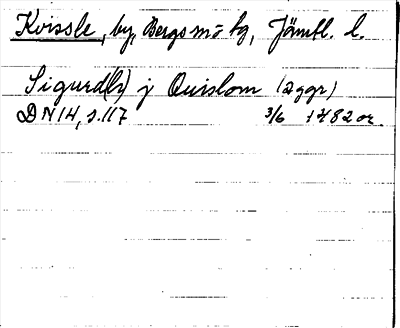 Kvissle, by, Bergs m o tg, Jämtl. l.
Sigurd(h) j Quislom (2 ggr)
DN 14, s. 117 3/6 1482 or.